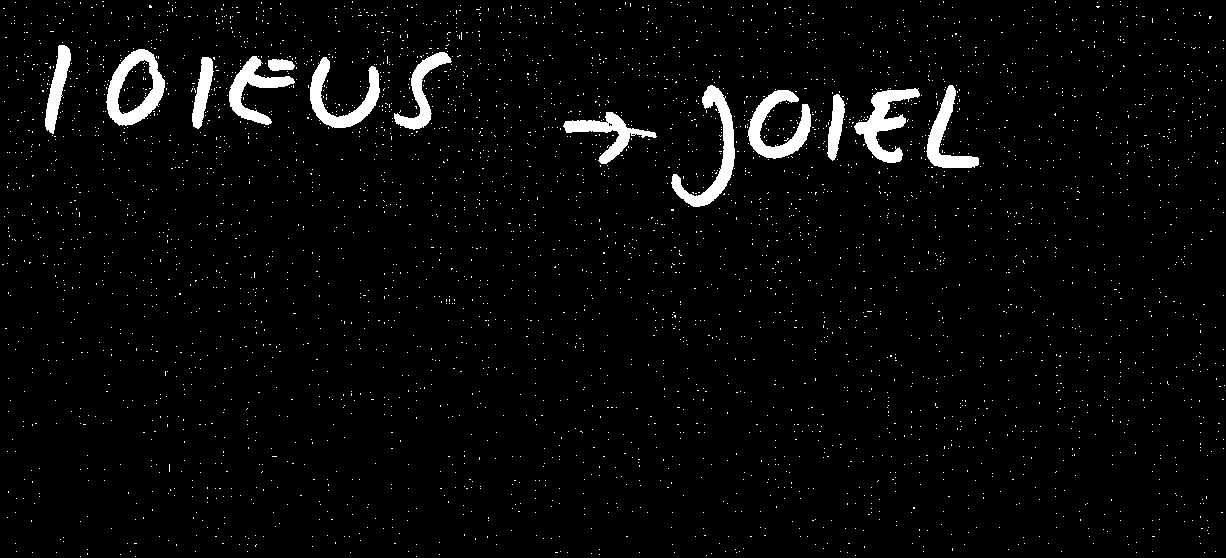 IOIEUS → JOIEL